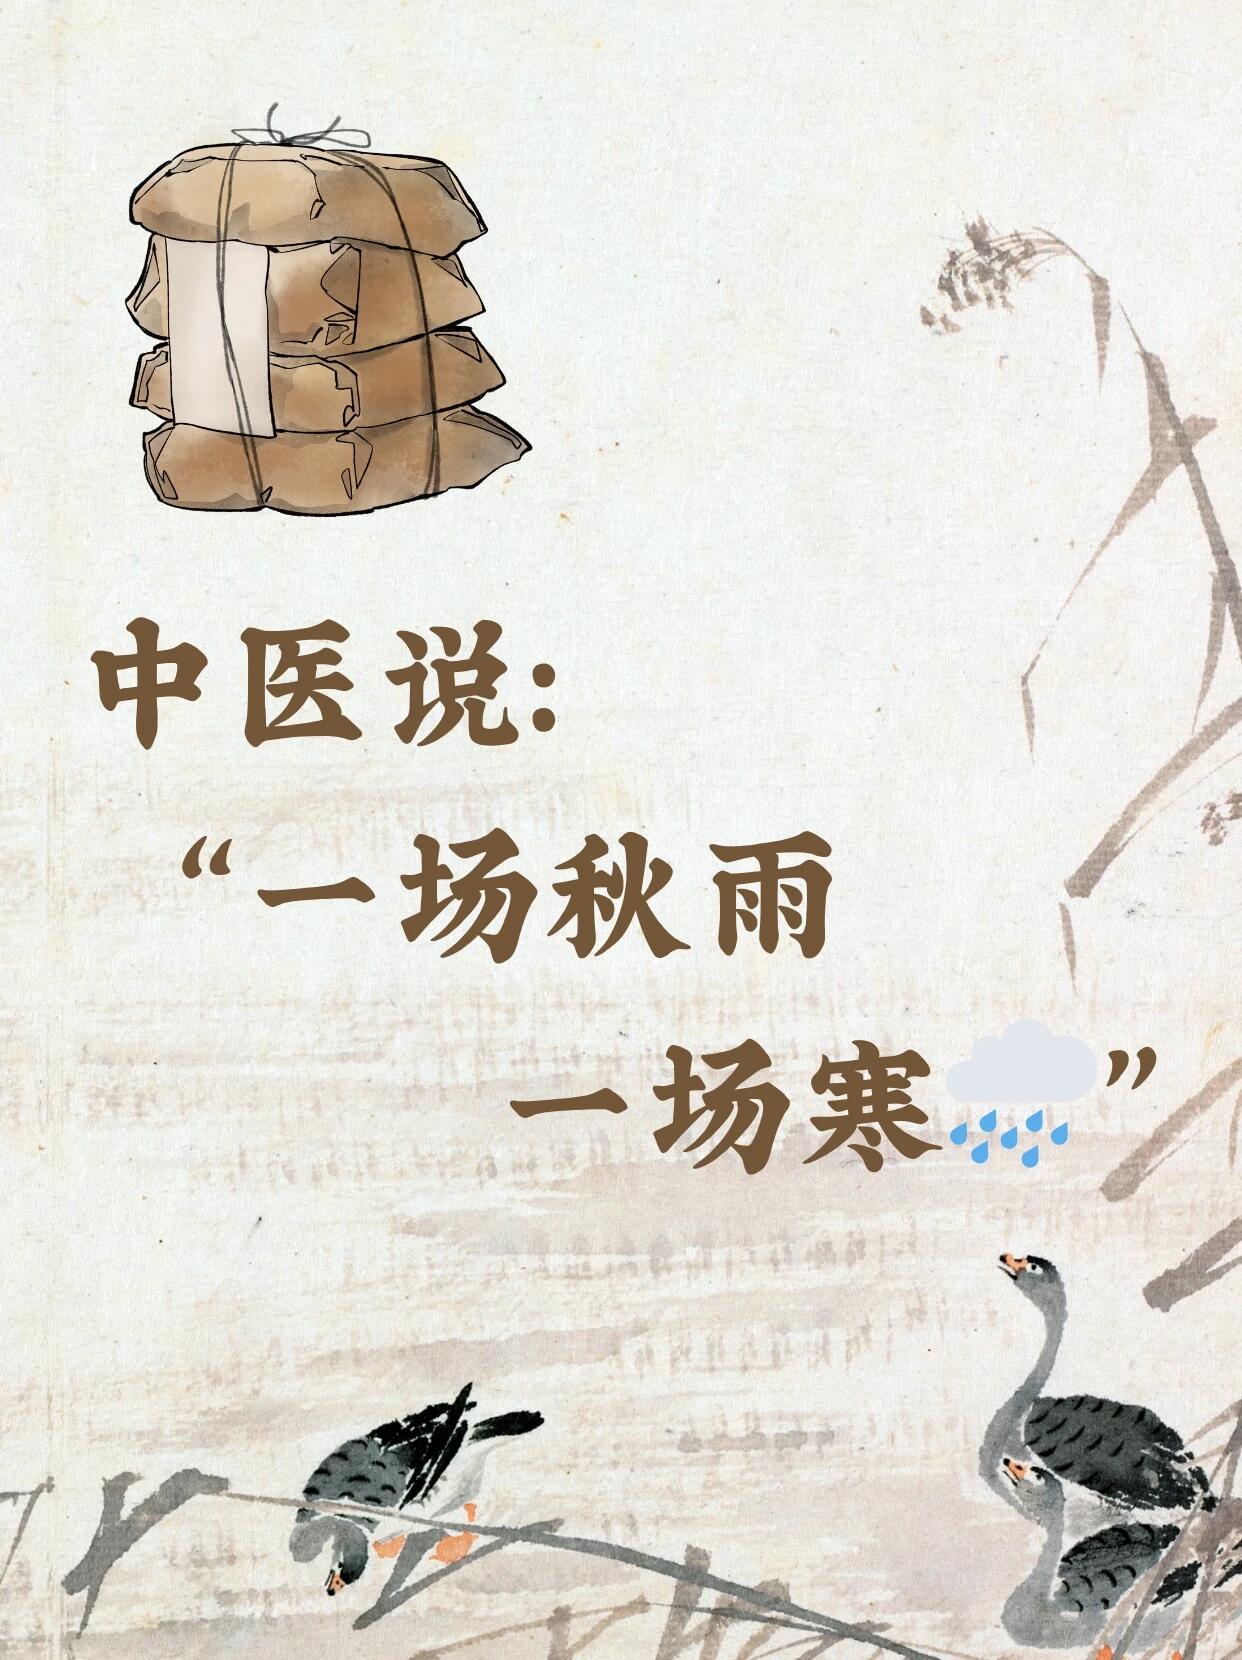 中医说:
“一场秋雨
一场寒🌧️”